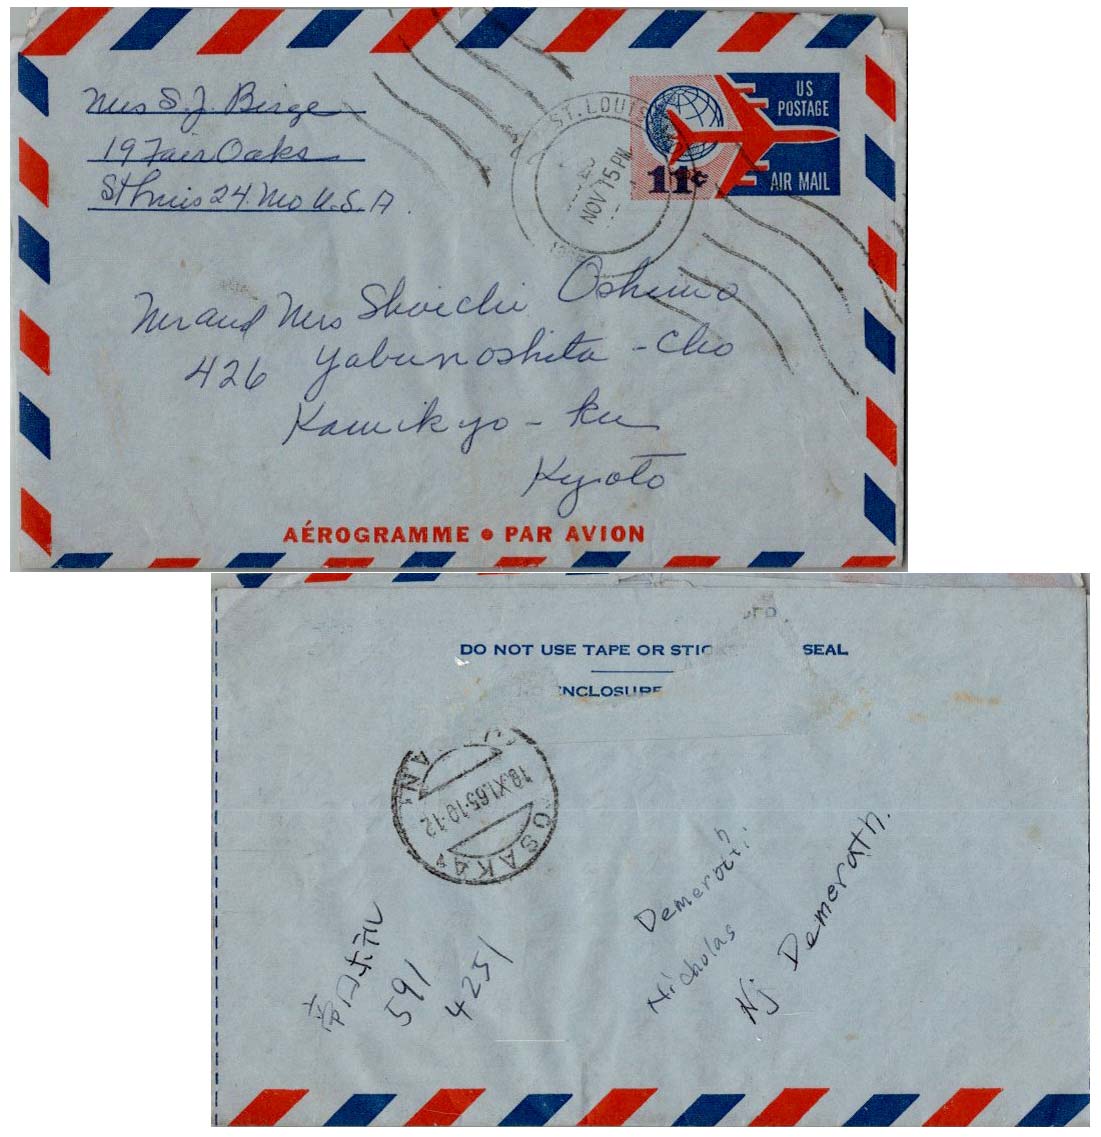 Mrs S. J. Birge
19 Fair Oaks
St Louis 24. Mo U.S.A.
ST. LOUIS
NOV 15 PM
US
POSTAGE
11c
AIR MAIL
Mr and Mrs Shoichi Oshimo
426 Yabunoshita - Cho
Kamikyo - ku
Kyoto
AÉROGRAMME • PAR AVION
DO NOT USE TAPE OR SEAL
ENCLOSURE
18.XI.65.10-12
OSAKA
591
4251
Nicholas
Nj Demerath.